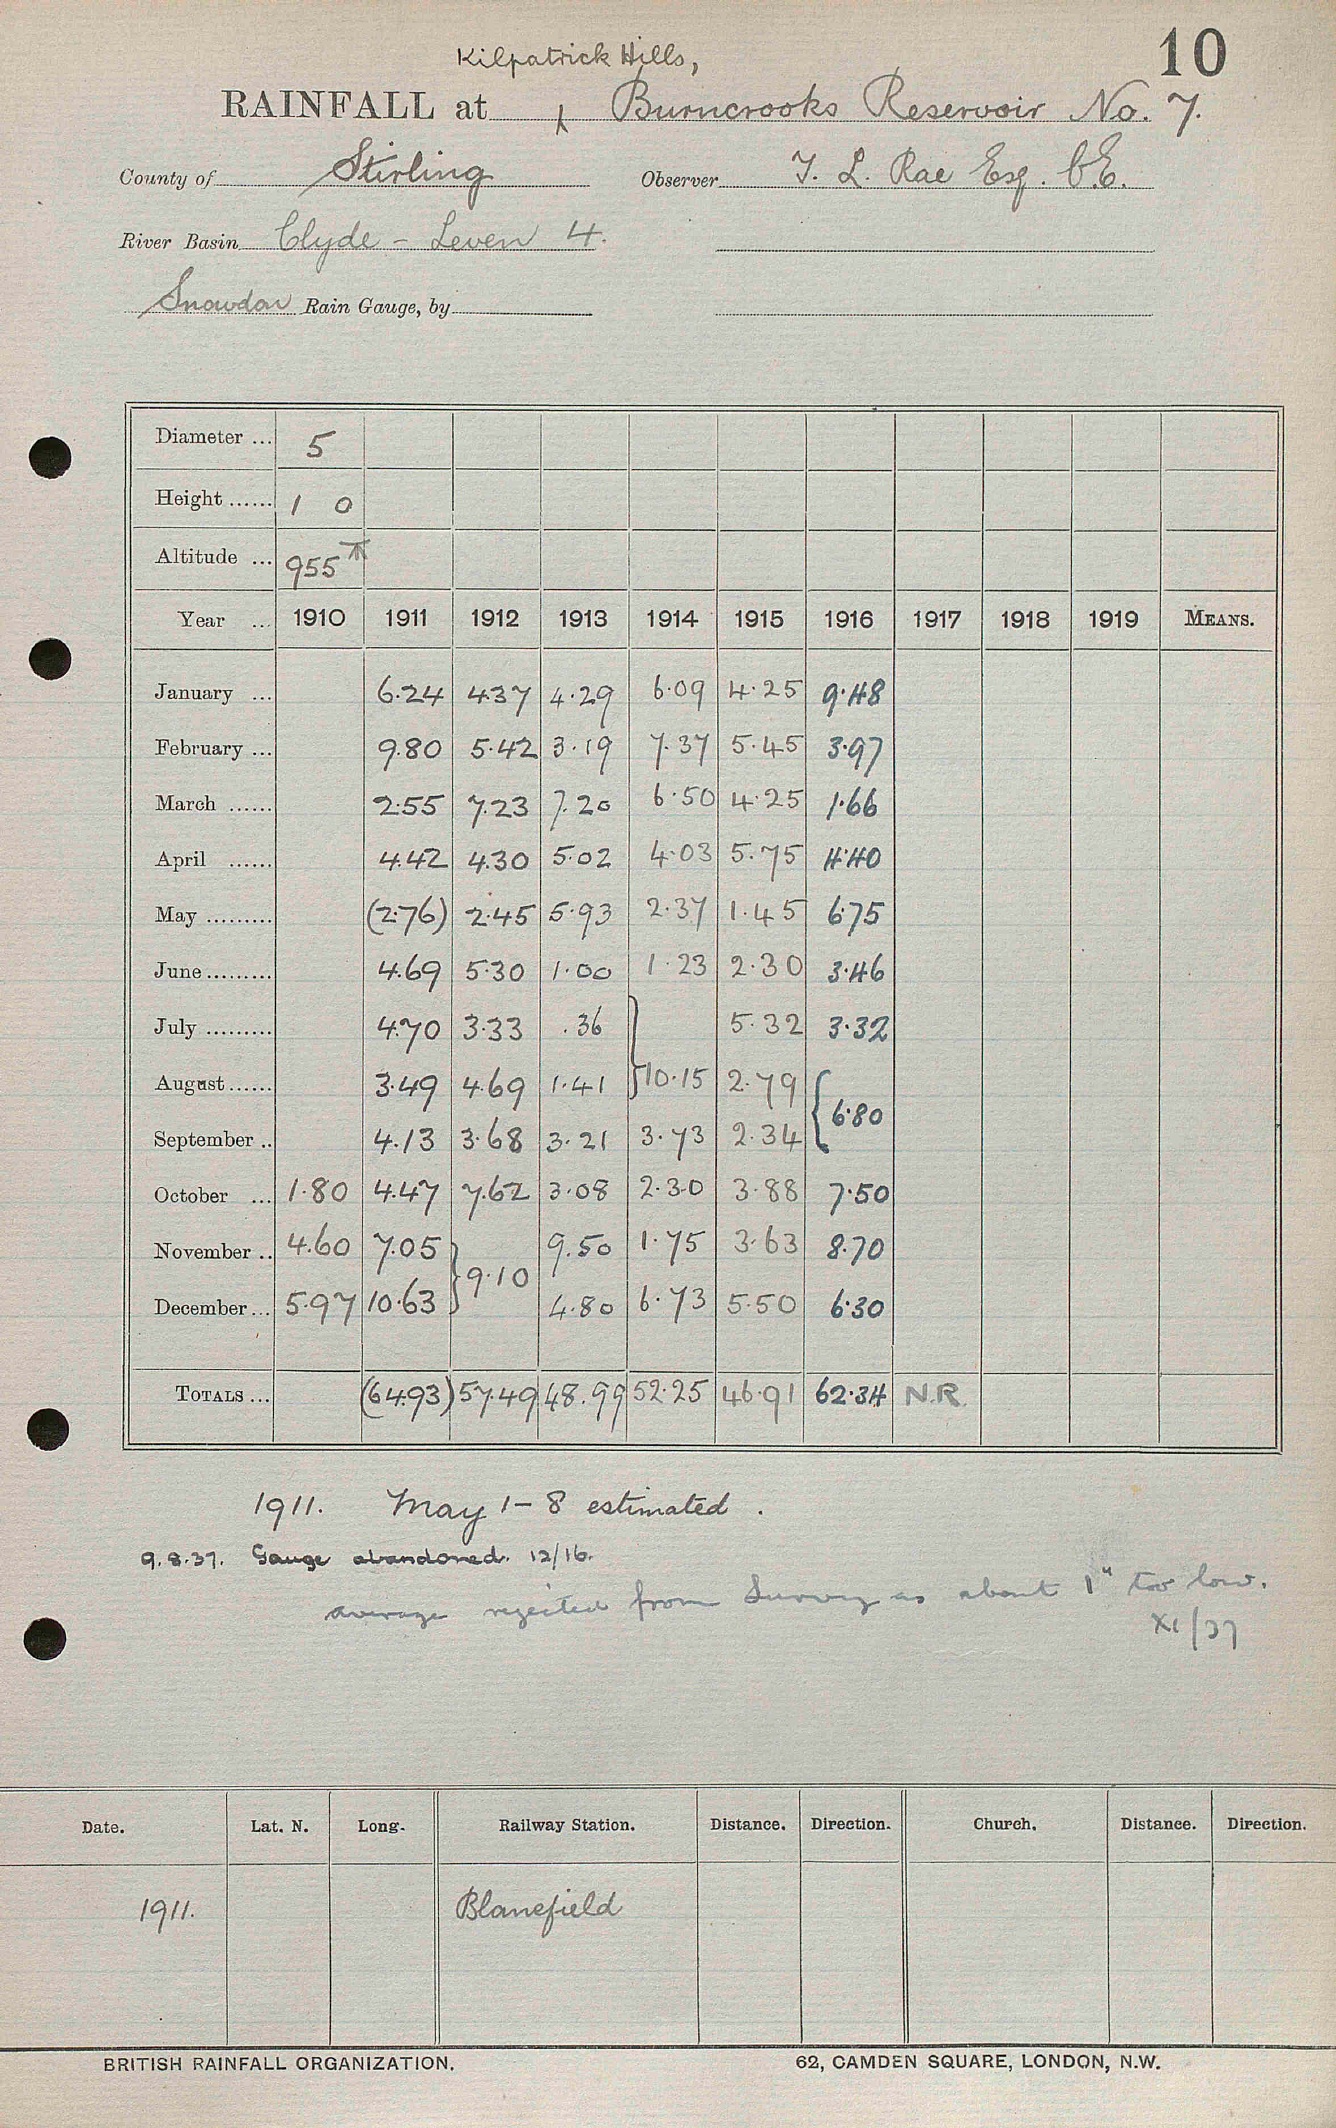 10
Kilpatrick Hills,
RAINFALL at Burncrooks Reservoir No. 7.
County of Stirling Observer T. L. Rae Esq. C.E.
River Basin Clyde - Leven 4.
Snowdon Rain Gauge, by
Diameter ... 5
Height ...... 1 0
Altitude ... 955
Year ... 1910 1911 1912 1913 1914 1915 1916 1917 1918 1919 MEANS.
January ... 6.24 4.37 4.29 6.09 4.25 9.48
February ... 9.80 5.42 3.19 7.37 5.45 3.97
March ...... 2.55 7.23 7.20 6.50 4.25 1.66
April ...... 4.42 4.30 5.02 4.03 5.75 4.40
May ......... (2.76) 2.45 5.93 2.37 1.45 6.75
June ......... 4.69 5.30 1.00 1.23 2.30 3.46
July ......... 4.70 3.33 .36 5.32 3.32
August ...... 3.49 4.69 1.41 } 10.15 2.79
September .. 4.13 3.68 3.21 3.73 2.34 { 6.80
October ... 1.80 4.47 7.62 3.08 2.30 3.88 7.50
November .. 4.60 7.05 9.50 1.75 3.63 8.70
December ... 5.97 10.63 } 9.10 4.80 6.73 5.50 6.30
TOTALS ... (64.93) 57.49 48.99 52.25 46.91 62.34 N.R.
1911. May 1-8 estimated.
9.8.37. Gauge abandoned. 12/16.
average rejected from Survey as about 1" too low.
XI/37
Date. Lat. N. Long. Railway Station. Distance. Direction. Church. Distance. Direction.
1911. Blanefield
BRITISH RAINFALL ORGANIZATION. 62, CAMDEN SQUARE, LONDON, N.W.